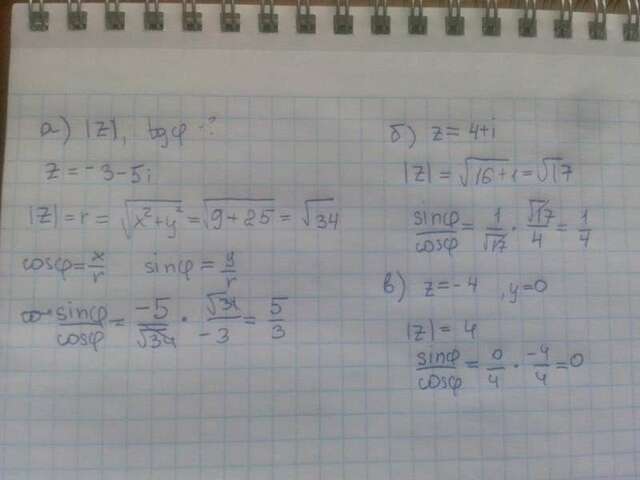 а) |z|, tgφ - ?
z = -3-5i
|z| = r = √x²+y² = √9+25 = √34
cosφ = x/r sinφ = y/r
sinφ/cosφ = -5/√34 · √34/-3 = 5/3
б) z = 4+i
|z| = √16+1 = √17
sinφ/cosφ = 1/√17 · √17/4 = 1/4
в) z = -4 , y=0
|z| = 4
sinφ/cosφ = 0/4 · -4/4 = 0